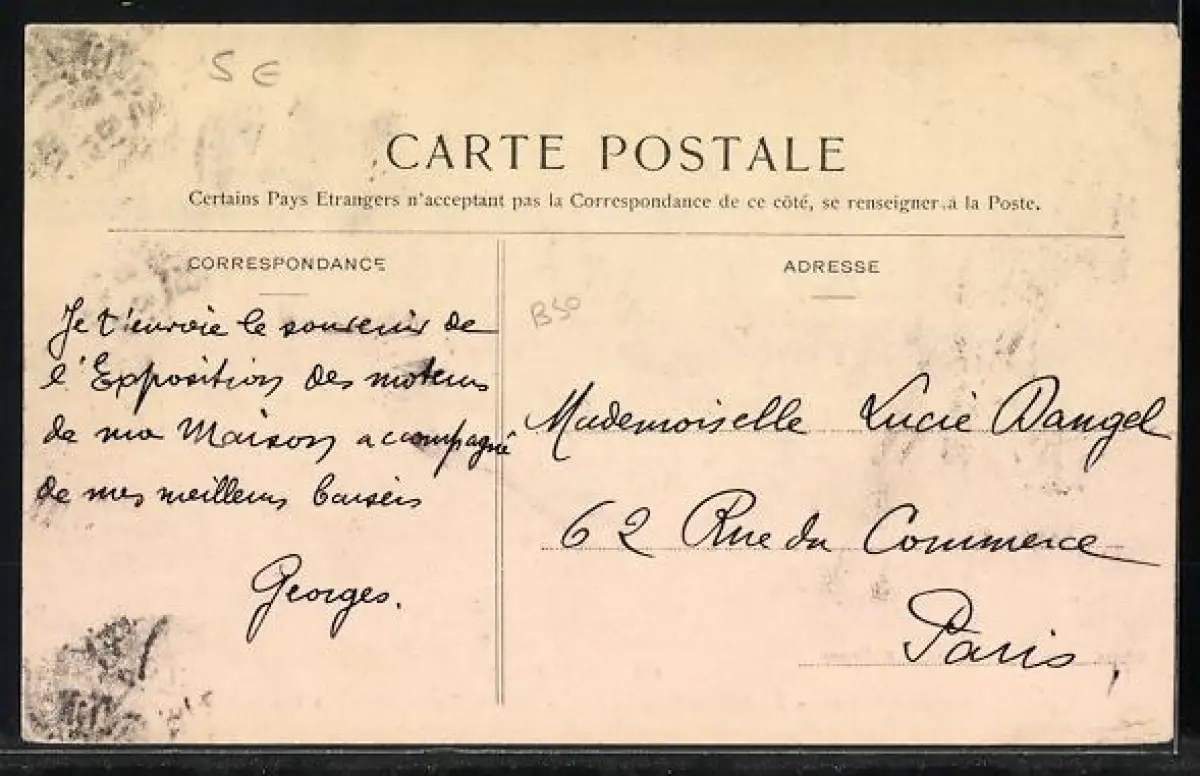 5 €
CARTE POSTALE
Certains Pays Etrangers n'acceptant pas la Correspondance de ce côté, se renseigner à la Poste.
CORRESPONDANCE
Je t'envoie le souvenir de
l'Exposition des moteurs
de ma Maison accompagné
de mes meilleurs baisers
Georges.
ADRESSE
B50
Mademoiselle Lucie Dangel
62 Rue du Commerce
Paris